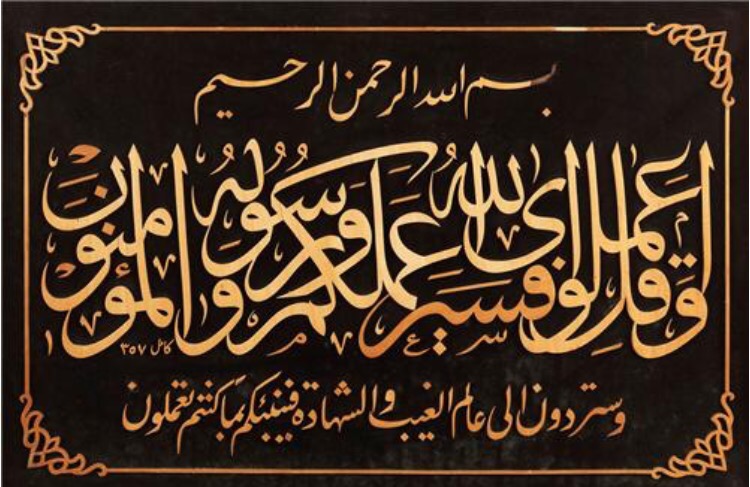 بسم الله الرحمن الرحيم
وَقُلِ اعْمَلُوا فَسَيَرَى اللهُ عَمَلَكُمْ وَرَسُولُهُ وَالْمُؤْمِنُونَ
كامل ٣٥٧
وستردون الى عالم الغيب والشهادة فينبئكم بما كنتم تعملون